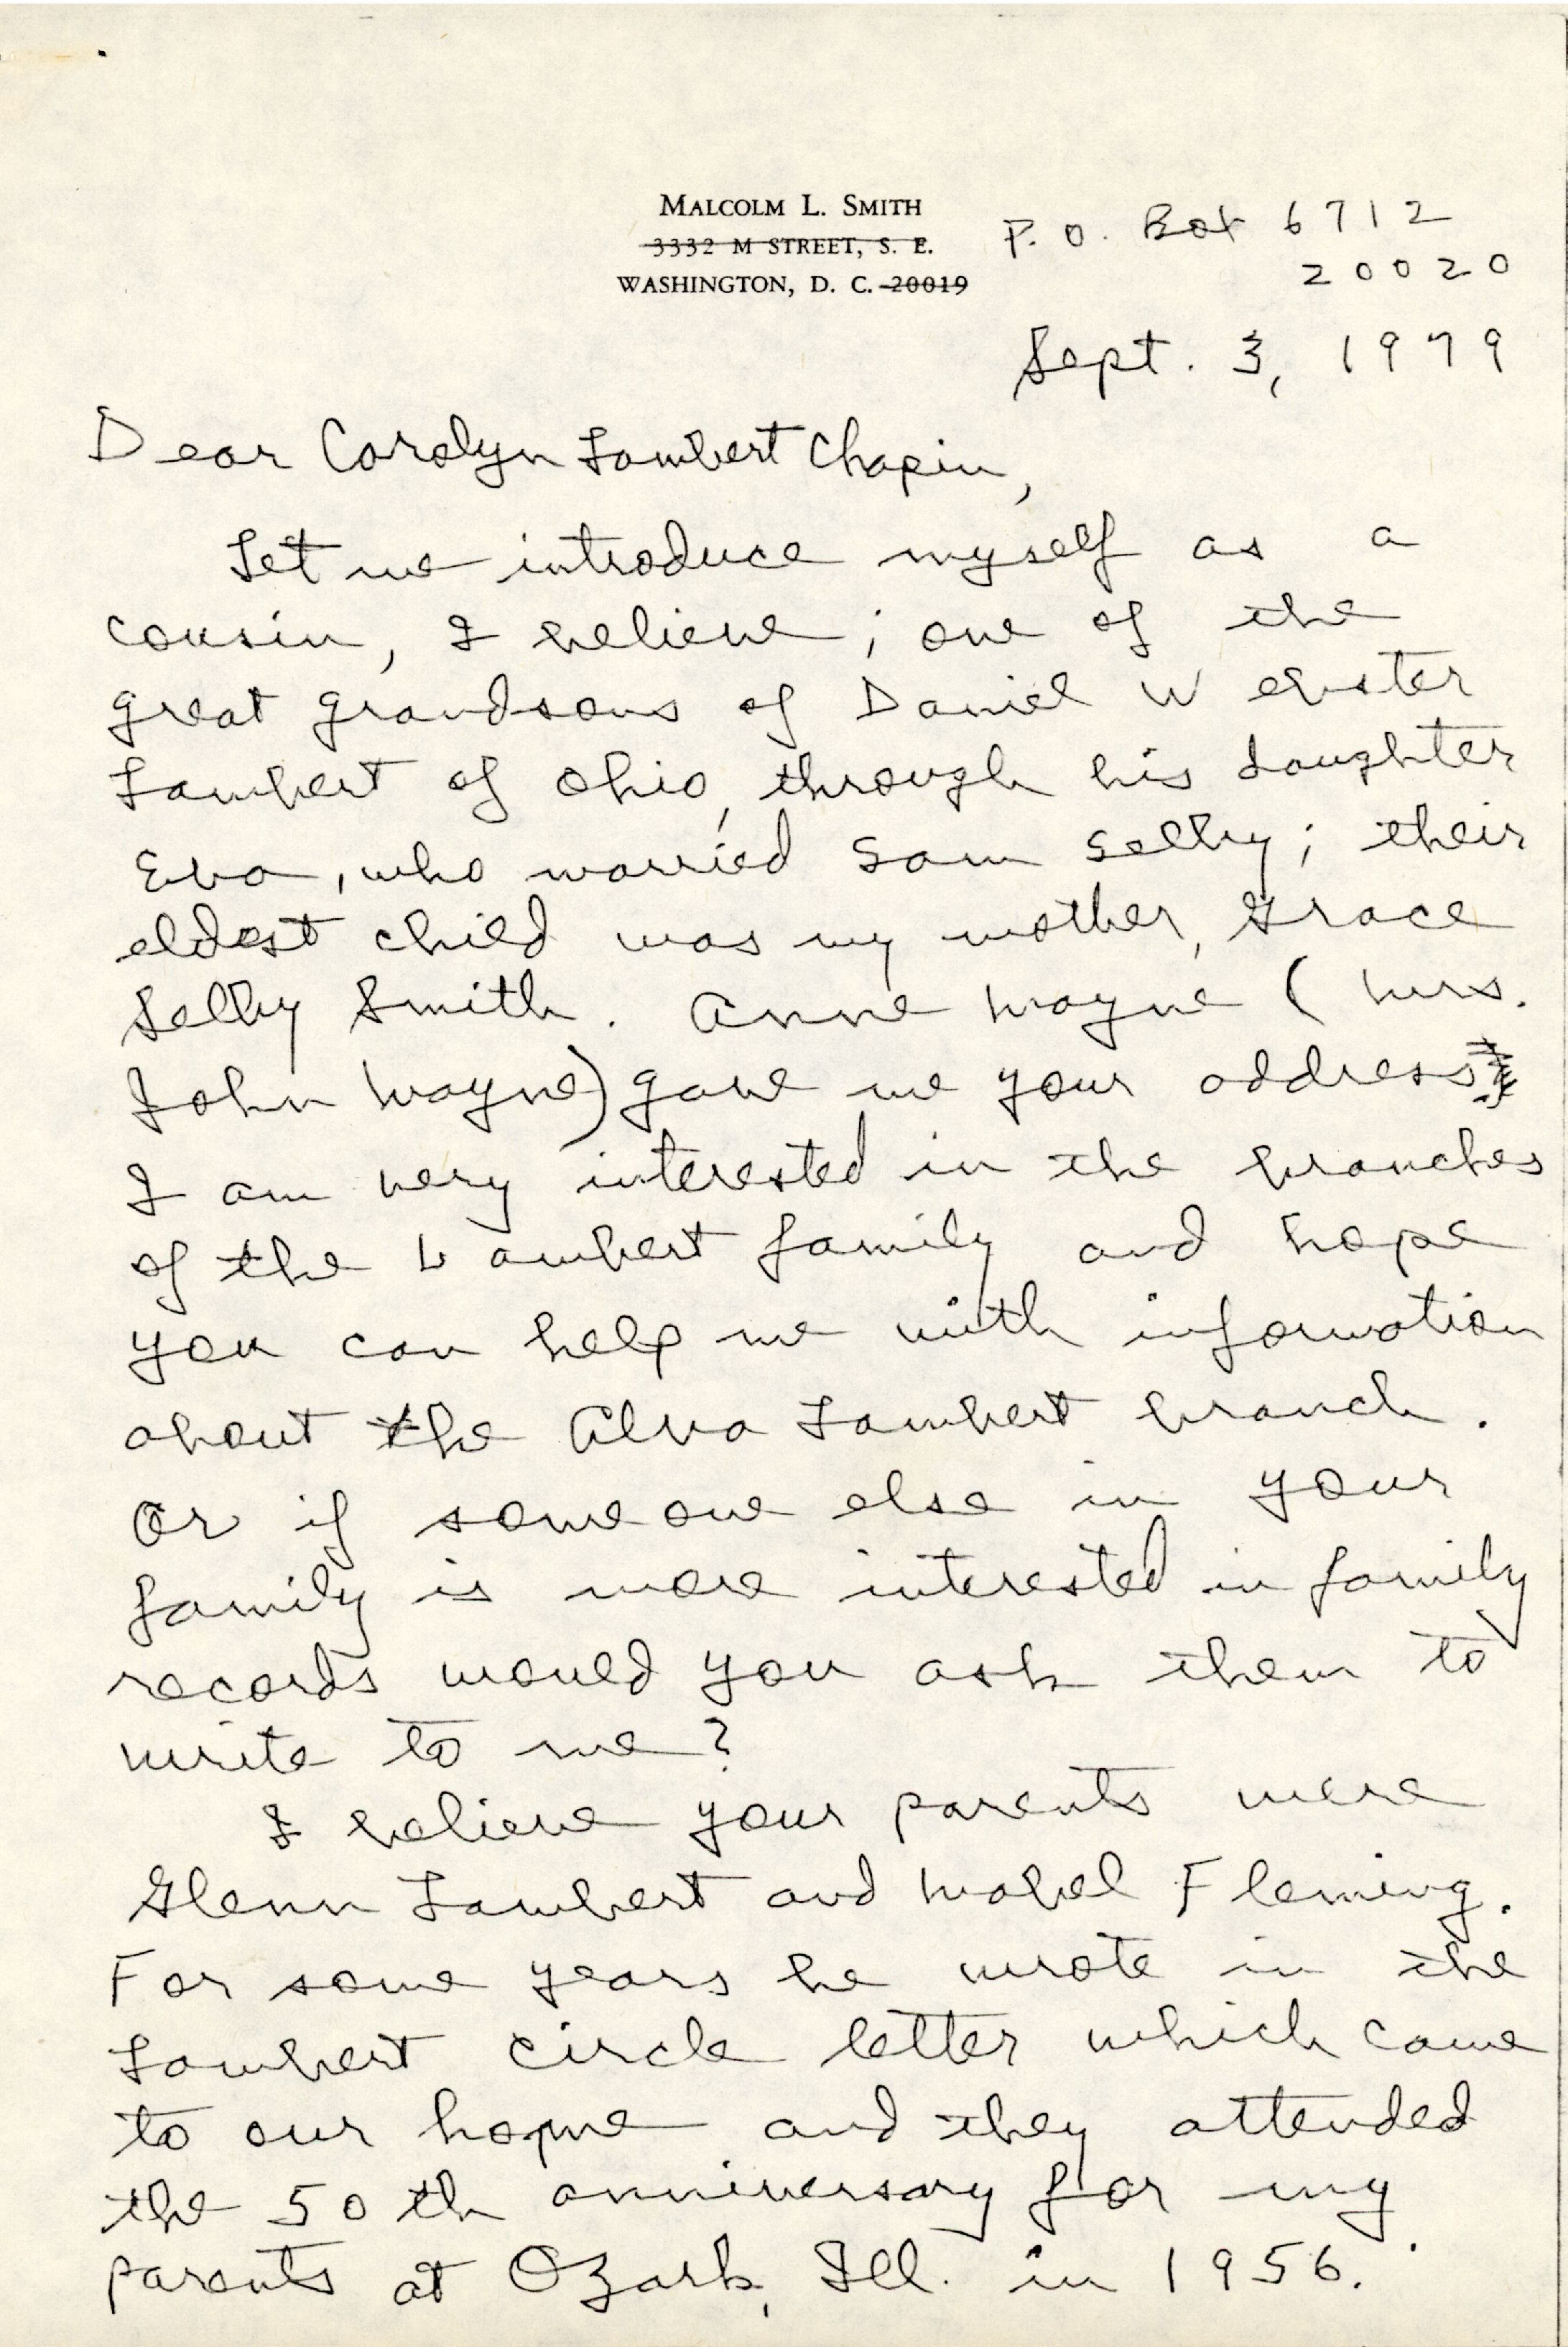 MALCOLM L. SMITH
3332 M STREET, S. E. P. O. Box 6712
WASHINGTON, D. C. 20019 20020
Sept. 3, 1979
Dear Carolyn Lambert Chapin,
Let me introduce myself as a
cousin, I believe; one of the
great grandsons of Daniel Webster
Lambert of Ohio, through his daughter
Eva, who married Sam Selby; their
eldest child was my mother, Grace
Selby Smith. Anne Wayne (Mrs.
John Wayne) gave me your address
I am very interested in the branches
of the Lambert family and hope
you can help me with information
about the Alva Lambert branch.
Or if someone else in your
family is more interested in family
records would you ask them to
write to me?
I believe your parents were
Glenn Lambert and Mabel Fleming.
For some years he wrote in the
Lambert circle letter which came
to our home and they attended
the 50th anniversary for my
parents at Ozark, Ill. in 1956.